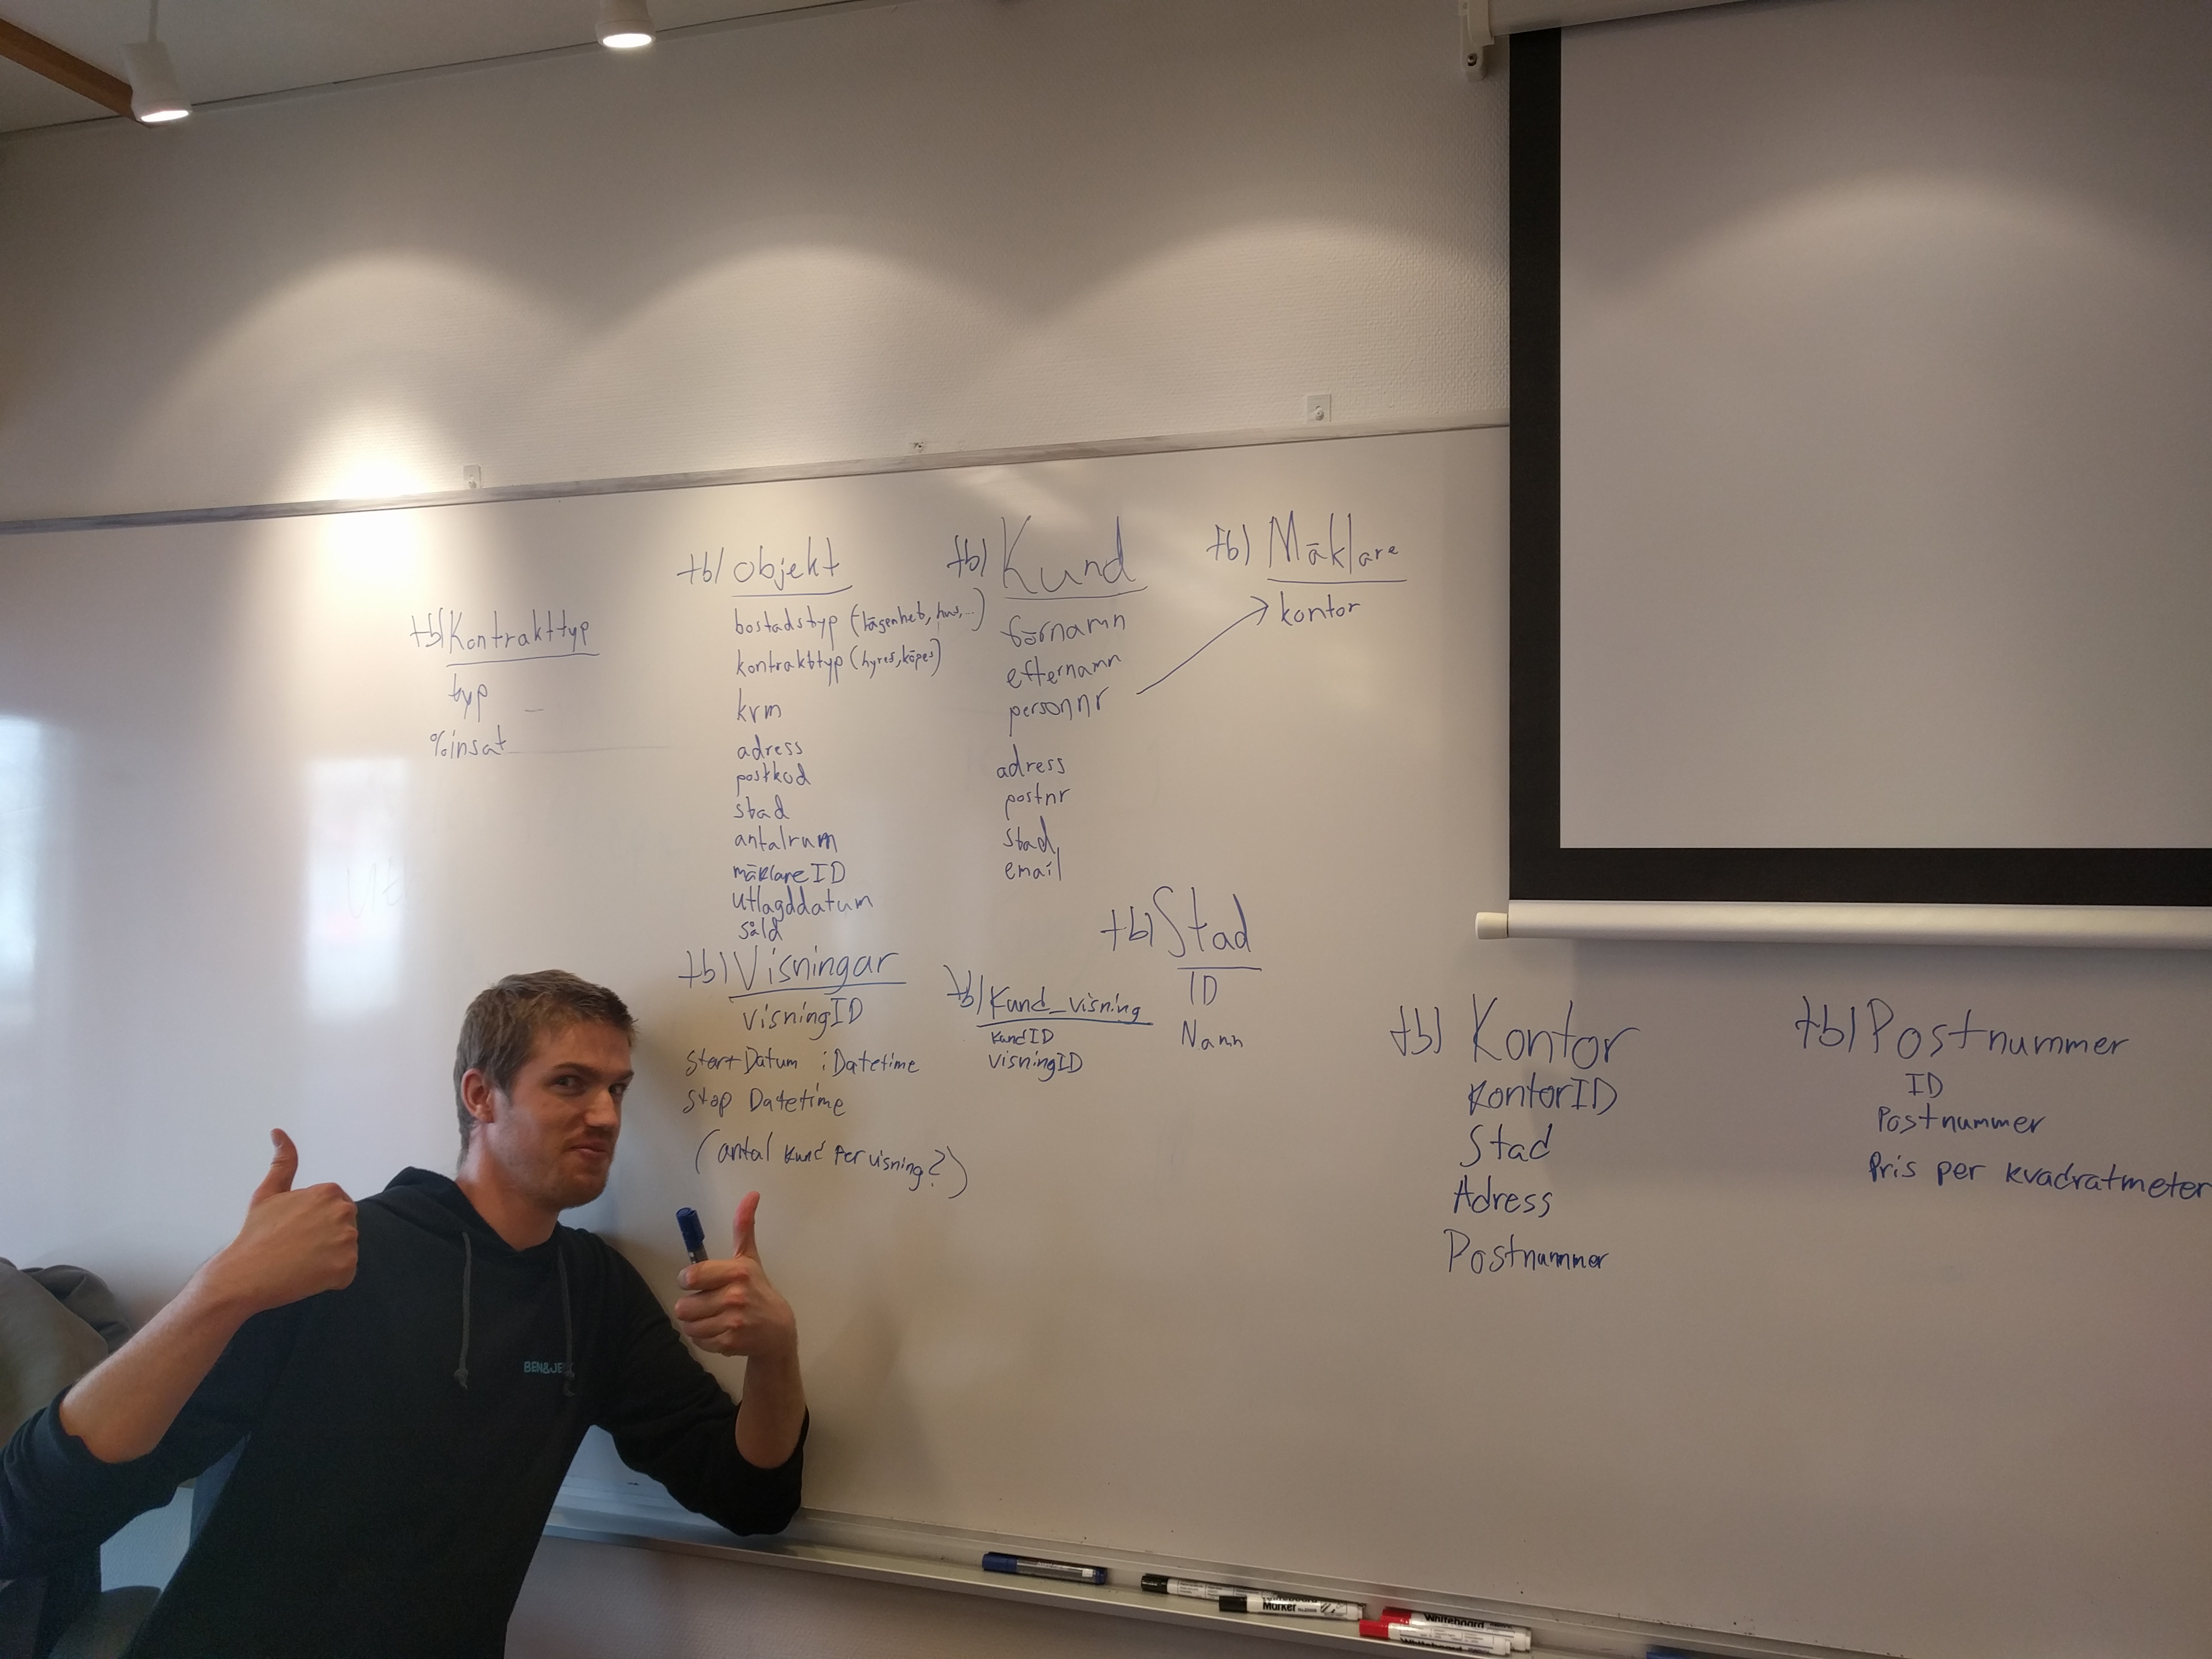 tblKontrakttyp
typ
%insat
tblobjekt
bostadstyp (lägenhet, hus,...)
kontrakttyp (hyres,köpes)
kvm
adress
postkod
stad
antalrum
mäklareID
utlagddatum
såld
tblKund
förnamn
efternamn
personnr
adress
postnr
stad
email
tblMäklare
kontor
tblVisningar
visningID
StartDatum :Datetime
Stop Datetime
(antal kund per visning?)
tblKund_visning
kundID
visningID
tblStad
ID
Namn
tblKontor
KontorID
Stad
Adress
Postnummer
tblPostnummer
ID
Postnummer
Pris per kvadratmeter
BEN&JE
Marker
Whiteboard
Whiteboard